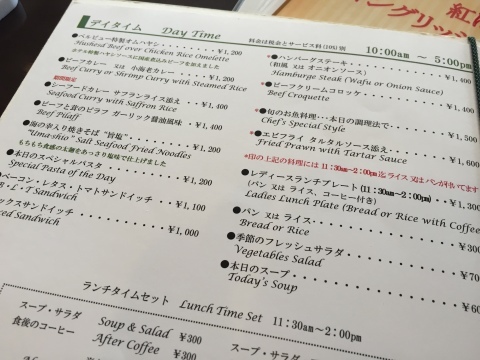 デイタイム Day Time
料金は税金とサービス料(10%)別 10:00am ～ 5:00pm
●ベルビュー特製オムハヤシ ¥1,200
Hashed Beef over Chicken Rice Omelette
ホテル特製ハヤシソースに国産煮込みビーフを加えました
●ビーフカレー 又は 小海老カレー ¥1,400
Beef Curry or Shrimp Curry with Steamed Rice
期間限定
●シーフードカレー サフランライス添え ¥1,400
Seafood Curry with Saffron Rice
●ビーフと茸のピラフ ガーリック醤油風味 ¥1,200
Beef Pilaff
●海の幸入り焼きそば "旨塩" ¥1,200
"Uma-shio" Salt Seafood Fried Noodles
もちもち食感の太麺をあっさり塩味で仕上げました
●本日のスペシャルパスタ ¥1,200
Special Pasta of the Day
ベーコン・レタス・トマトサンドイッチ ¥1,100
B・L・T Sandwich
ックスサンドイッチ ¥1,000
Sandwich
●ハンバーグステーキ ¥1,400
(和風 又は オニオンソース)
Hamburg Steak (Wafu or Onion Sauce)
●ビーフクリームコロッケ ¥1,400
Beef Croquette
●旬のお魚料理・・・本日の調理法で ¥1,500
Chef's Special Style
●エビフライ タルタルソース添え ¥1,600
Fried Prawn with Tartar Sauce
*印の上記の料理には 11:30am～2:00pm迄 ライス又はパンが付いてます
●レディースランチプレート (11:30am～2:00pm) ¥1,300
(パン 又は ライス、コーヒー付き)
Ladies Lunch Plate (Bread or Rice with Coffee
●パン 又は ライス ¥300
Bread or Rice
●季節のフレッシュサラダ ¥70
Vegetables Salad
●本日のスープ ¥60
Today's Soup
ランチタイムセット Lunch Time Set 11:30am～2:00pm
スープ・サラダ Soup & Salad ¥300
食後のコーヒー After Coffee ¥300
スープ・サラダ